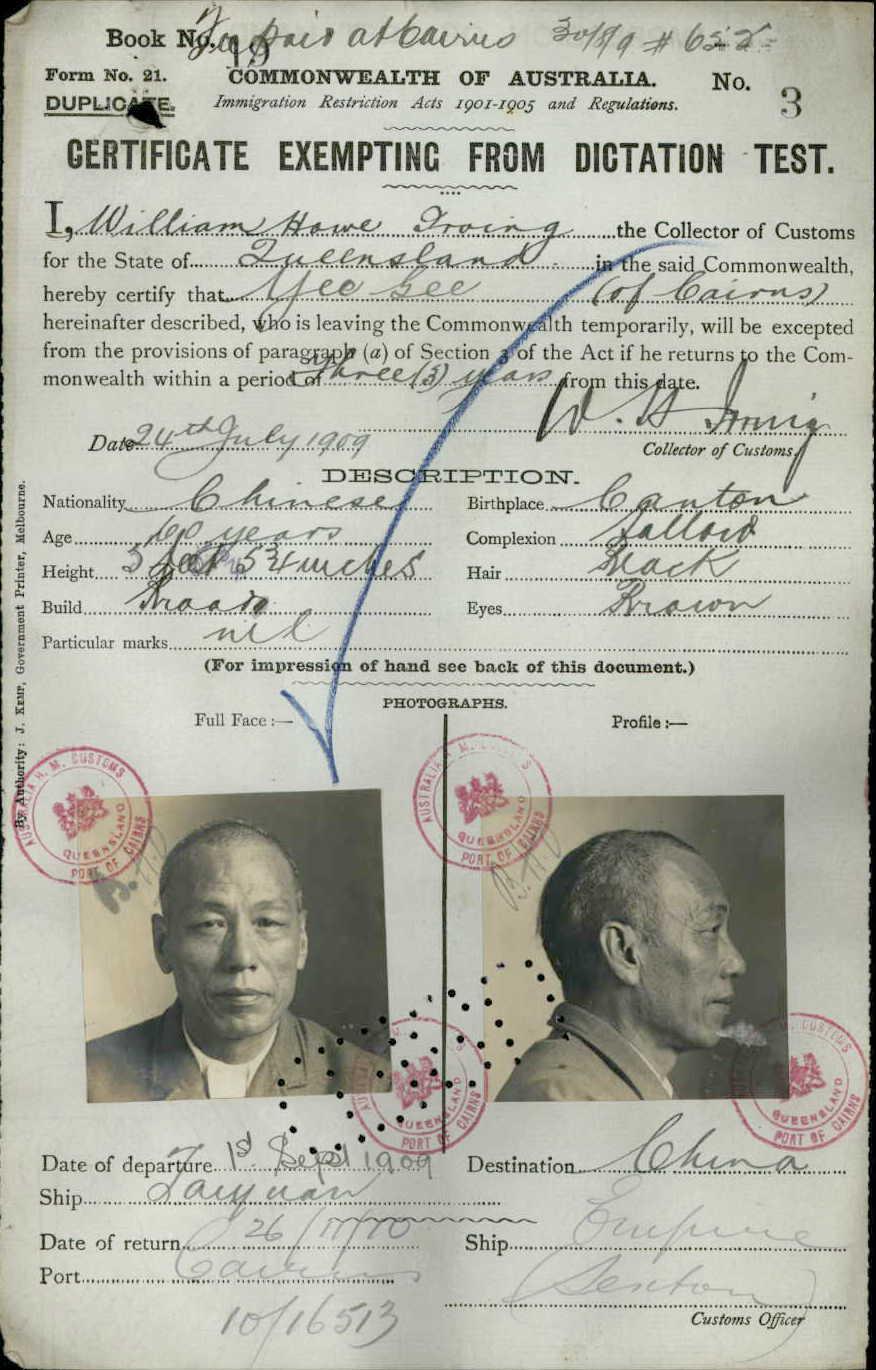 Book No. 19 Fee paid at Cairns 30/8/9 # 652
Form No. 21. COMMONWEALTH OF AUSTRALIA. No. 3
DUPLICATE. Immigration Restriction Acts 1901-1905 and Regulations.
CERTIFICATE EXEMPTING FROM DICTATION TEST.
I, William Howe Irving the Collector of Customs
for the State of Queensland in the said Commonwealth,
hereby certify that Yee Gee (of Cairns)
hereinafter described, who is leaving the Commonwealth temporarily, will be excepted
from the provisions of paragraph (a) of Section 3 of the Act if he returns to the Com-
monwealth within a period of three (3) years from this date.
W. H. Irving
Date 24th July 1909 Collector of Customs.
DESCRIPTION.
Nationality Chinese Birthplace Canton
Age 60 years Complexion Sallow
Height 5 feet 5 3/4 inches Hair Black
Build Broad Eyes Brown
Particular marks nil
(For impression of hand see back of this document.)
PHOTOGRAPHS.
Full Face :— Profile :—
AUSTRALIA H. M. CUSTOMS QUEENSLAND PORT OF CAIRNS
AUSTRALIA H. M. CUSTOMS QUEENSLAND PORT OF CAIRNS
AUSTRALIA QUEENSLAND PORT OF CAIRNS
M. CUSTOMS QUEENSLAND PORT OF CAIRNS
Date of departure 1st Sept 1909 Destination China
Ship Taiyuan
Date of return 26/11/10 Ship Empire
Port Cairns (Sexton)
10/16513 Customs Officer
By Authority: J. KEMP, Government Printer, Melbourne.